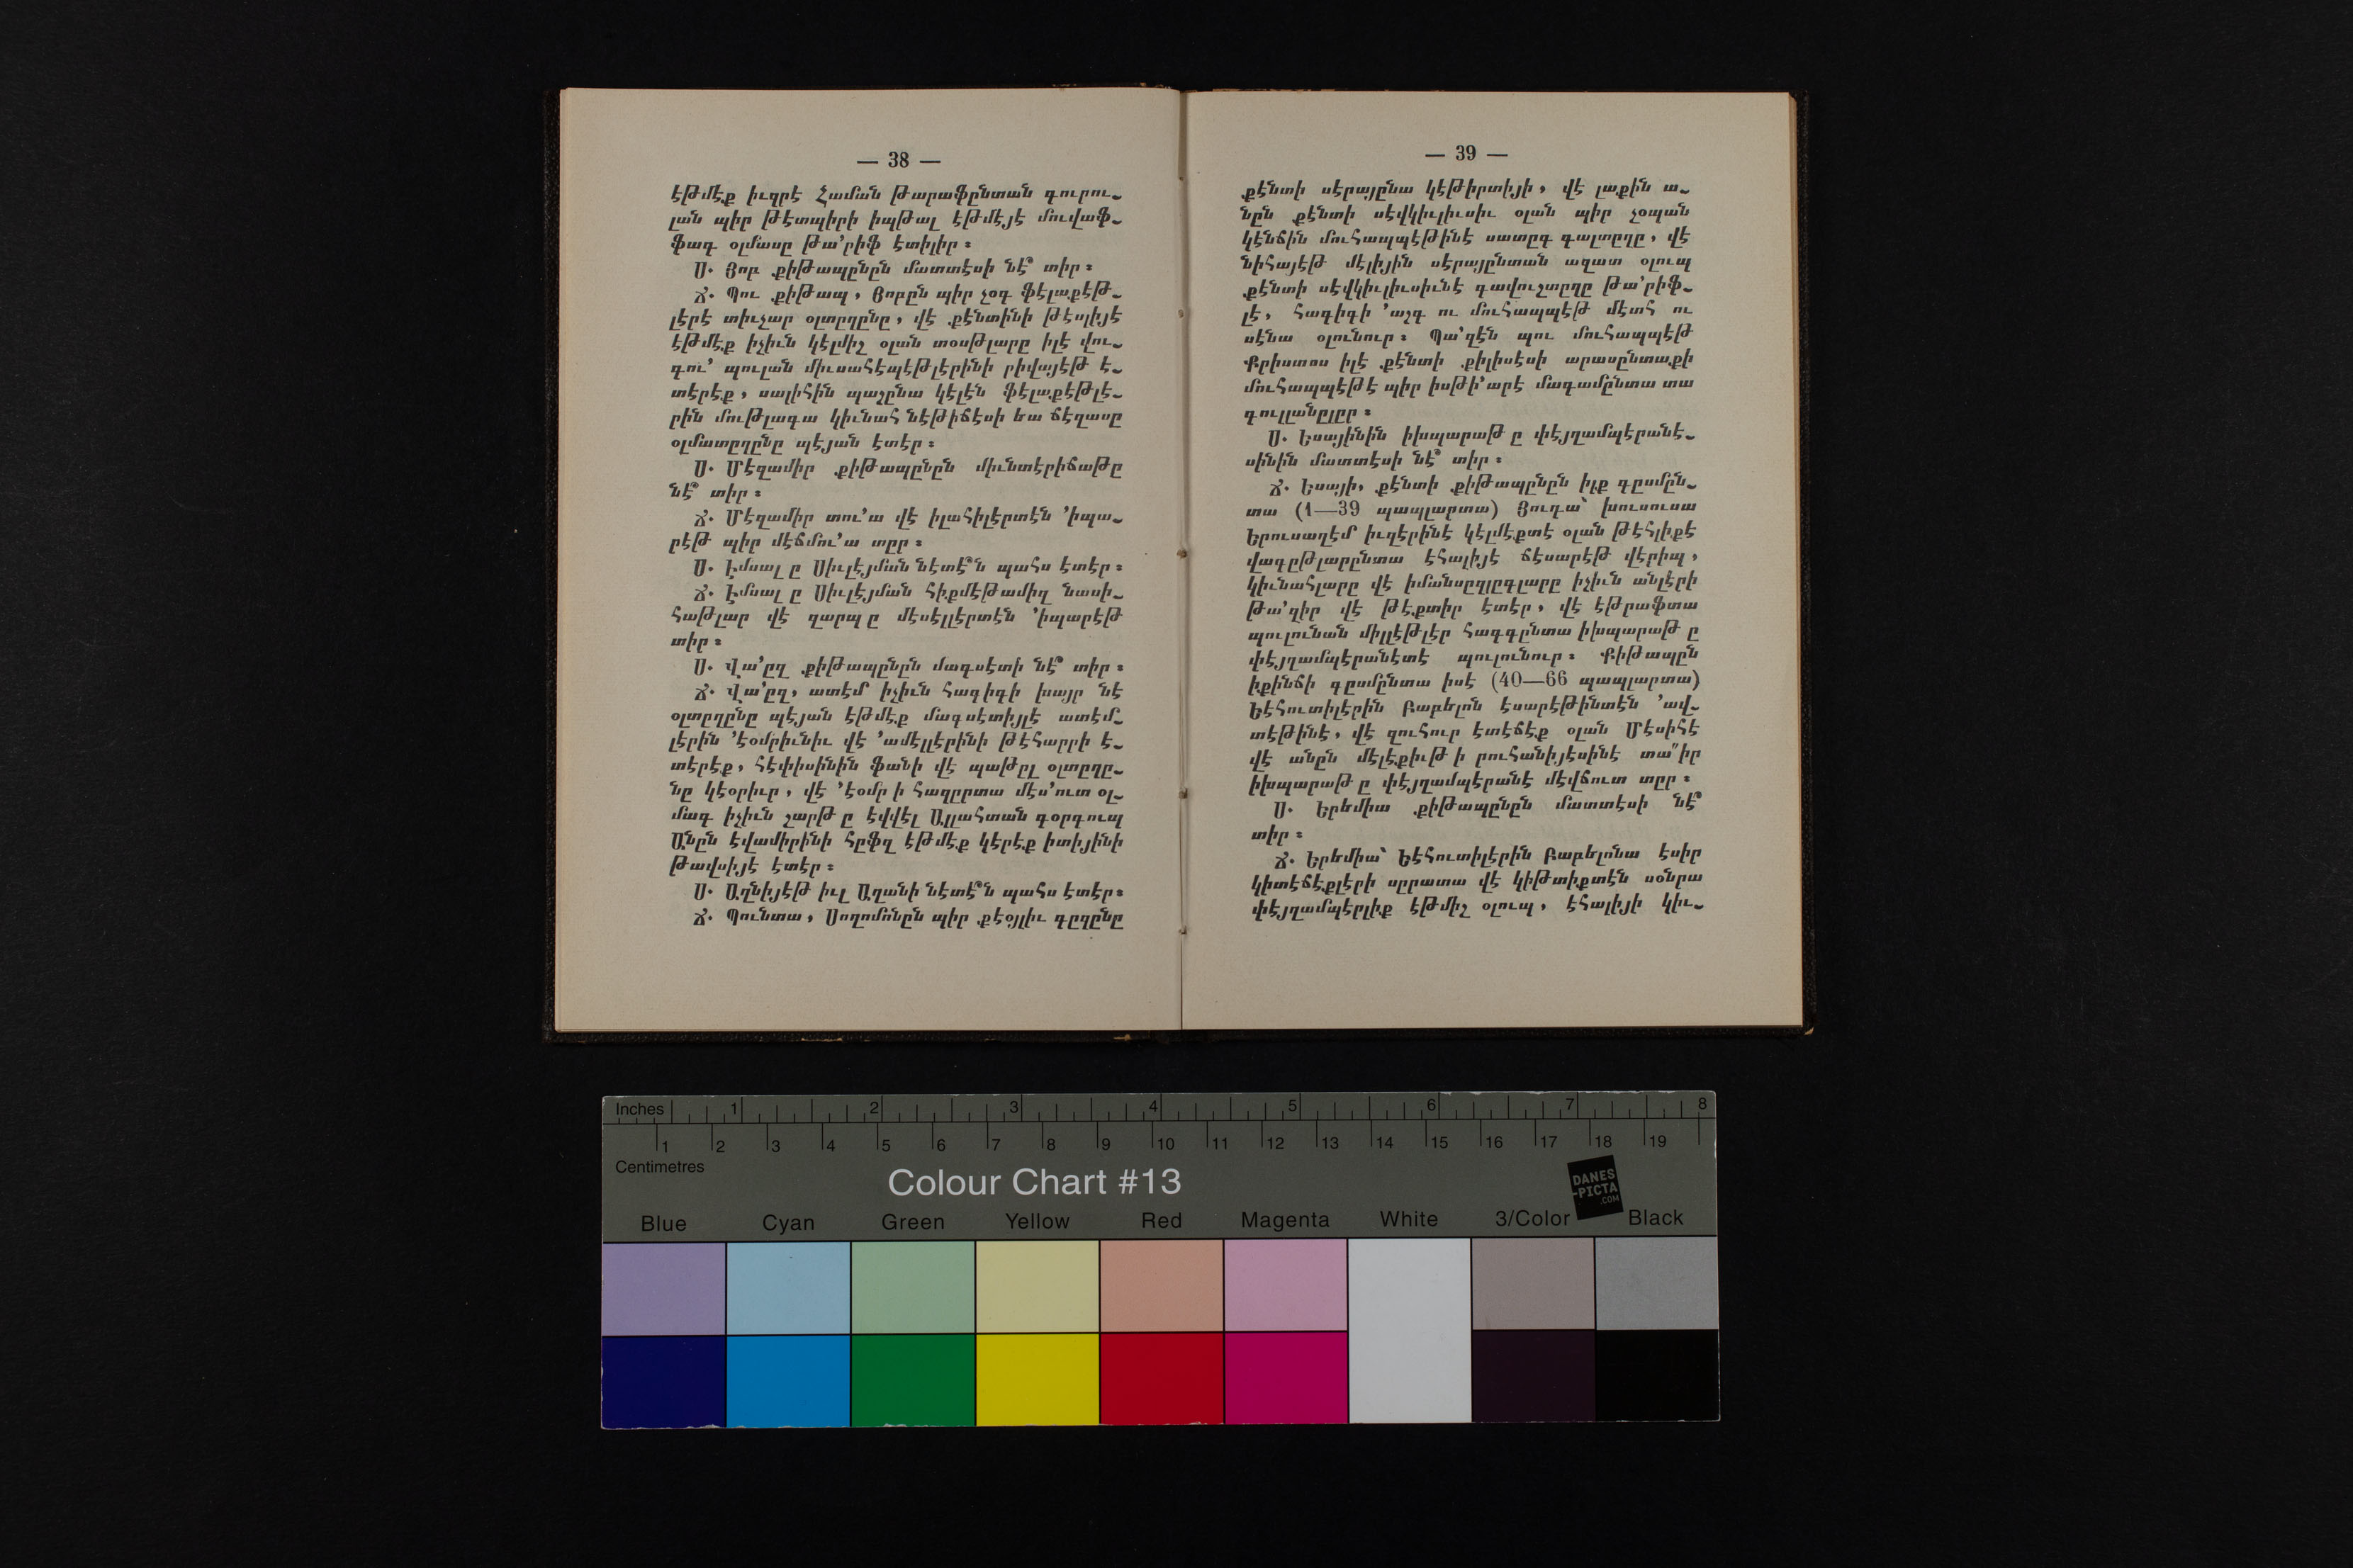 — 38 —
էթմէք իւզրէ Համան թարաֆընտան գուրու֊
լան պիր թէտպիրի իպթալ էթմէյէ մուվաֆ֊
ֆագ օլմասը թա՚րիֆ էտիլիր ։
Ս. Յոբ քիթապընըն մատտէսի նէ՞ տիր ։
Ճ. Պու քիթապ, Յորըն պիր չօգ ֆէլաքէթ֊
լէրէ տիւչար օլտըղընը, վէ քէնտինի թէսլիյէ
էթմէք իչիւն կէլմիշ օլան տօսթլարը իլէ վու֊
գու՚ պուլան միւսահէպէթլէրինի րիվայէթ է֊
տէրէք, սալիհին պաշընա կէլէն ֆէլաքէթլէ֊
րին մութլագա կիւնահ նէթիճէսի եա ճէզասը
օլմատըղընը պէյան էտէր ։
Ս. Մէզամիր քիթապընըն միւնտէրիճաթը
նէ՞ տիր ։
Ճ. Մէզամիր տու՚ա վէ իլահիլէրտէն ՚իպա֊
րէթ պիր մէճմու՚ա տըր ։
Ս. Էմսալ ը Սիւլէյման նէտէ՞ն պահս էտէր ։
Ճ. Էմսալ ը Սիւլէյման հիքմէթամիզ նասի֊
հաթլար վէ զարպ ը մէսէլլէրտէն ՚իպարէթ
տիր ։
Ս. Վա՚ըզ քիթապընըն մագսէտի նէ՞ տիր ։
Ճ. Վա՚ըզ, ատէմ իչիւն հագիգի խայր նէ
օլտըղընը պէյան էթմէք մագսէտիյլէ ատէմ֊
լէրին ՚էօմրիւնիւ վէ ՚ամէլլէրինի թէհարրի է֊
տէրէք, հէփիսինին ֆանի վէ պաթըլ օլտըղը֊
նը կէօրիւր, վէ ՚էօմր ի հազըրտա մէս՚ուտ օլ֊
մագ իչիւն շարթ ը էվվէլ Ալլահտան գօրգուպ
Անըն էվամիրինի հըֆզ էթմէք կէրէք իտիյինի
թավսիյէ էտէր ։
Ս. Աղնիյէթ իւլ Աղանի նէտէ՞ն պահս էտէր ։
Ճ. Պունտա, Սողոմոնըն պիր քէօյլիւ գըզընը
— 39 —
քէնտի սէրայընա կէթիրտիյի, վէ լաքին ա֊
նըն քէնտի սէվկիւլիւսիւ օլան պիր չօպան
կէնճին մուհապպէթինէ սատըգ գալտըղը, վէ
նիհայէթ մէլիյին սէրայընտան ազատ օլուպ
քէնտի սէվկիւլիւսիւնէ գավուշտըղը թա՚րիֆ֊
լէ, հագիգի ՚աշգ ու մուհապպէթ մէտհ ու
սէնա օլունուր ։ Պա՚զէն պու մուհապպէթ
Քրիստոս իլէ քէնտի քիլիսէսի արասընտաքի
մուհապպէթէ պիր իսթի՚արէ մագամընտա տա
գուլլանըլըր ։
Ս. Եսայինին իխպարաթ ը փէյղամպէրանէ֊
սինին մատտէսի նէ՞ տիր ։
Ճ. Եսայի, քէնտի քիթապընըն իլք գըսմըն֊
տա (1—39 պապլարտա) Յուդա՝ խուսուսա
Երուսաղէմ իւզէրինէ կէլմէքտէ օլան թէհլիքէ
վագըթլարընտա էհալիյէ ճէսարէթ վէրիպ,
կիւնահլարը վէ իմանսըզլըգլարը իչիւն անլէրի
թա՚զիր վէ թէքտիր էտէր, վէ էթրաֆտա
պուլունան միլլէթլէր հագգընտա իխպարաթ ը
փէյղամպէրանէտէ պուլունուր ։ Քիթապըն
իքինճի գըսմընտա իսէ (40—66 պապլարտա)
Եէհուտիլէրին Բաբելոն էսարէթինտէն ՚ավ֊
տէթինէ, վէ զուհուր էտէճէք օլան Մէսիհէ
վէ անըն մէլէքիւթ ի րուհանիյէսինէ տա՚՚իր
իխպարաթ ը փէյղամպէրանէ մէվճուտ տըր ։
Ս. Երեմիա քիթապընըն մատտէսի նէ՞
տիր ։
Ճ. Երեմիա՝ Եէհուտիլէրին Բաբելոնա էսիր
կիտէճէքլէրի սըրատա վէ կիթտիքտէն սօնրա
փէյղամպէրլիք էթմիշ օլուպ, էհալիյի կիւ֊
Inches 1 2 3 4 5 6 7 8
1 2 3 4 5 6 7 8 9 10 11 12 13 14 15 16 17 18 19
Centimetres
Colour Chart #13
DANES
-PICTA
.COM
Blue Cyan Green Yellow Red Magenta White 3/Color Black